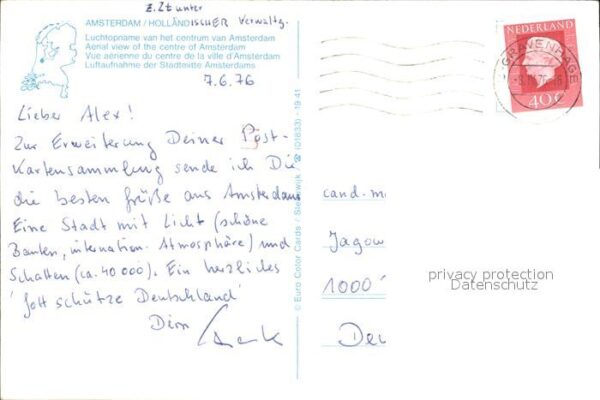 z.Zt unter
AMSTERDAM / HOLLÄNDISCHER Verwaltg.
Luchtopname van het centrum van Amsterdam
Aerial view of the centre of Amsterdam
Vue aérienne du centre de la ville d'Amsterdam
Luftaufnahme der Stadtmitte Amsterdams
7.6.76
Lieber Alex!
Zur Erweiterung Deiner Post-
Kartensammlung sende ich Dir
die besten Grüße aus Amsterdam
Eine Stadt mit Licht (schöne
Bauten, internation. Atmosphäre) und
Schatten (ca. 40 000). Ein herzliches
'Gott schütze Deutschland'
Dein
© Euro Color Cards / Steenwijk / ☎ (01833) - 1941
NEDERLAND
40c
'S-GRAVENHAGE
cand. m
Jagow
1000
De
privacy protection
Datenschutz